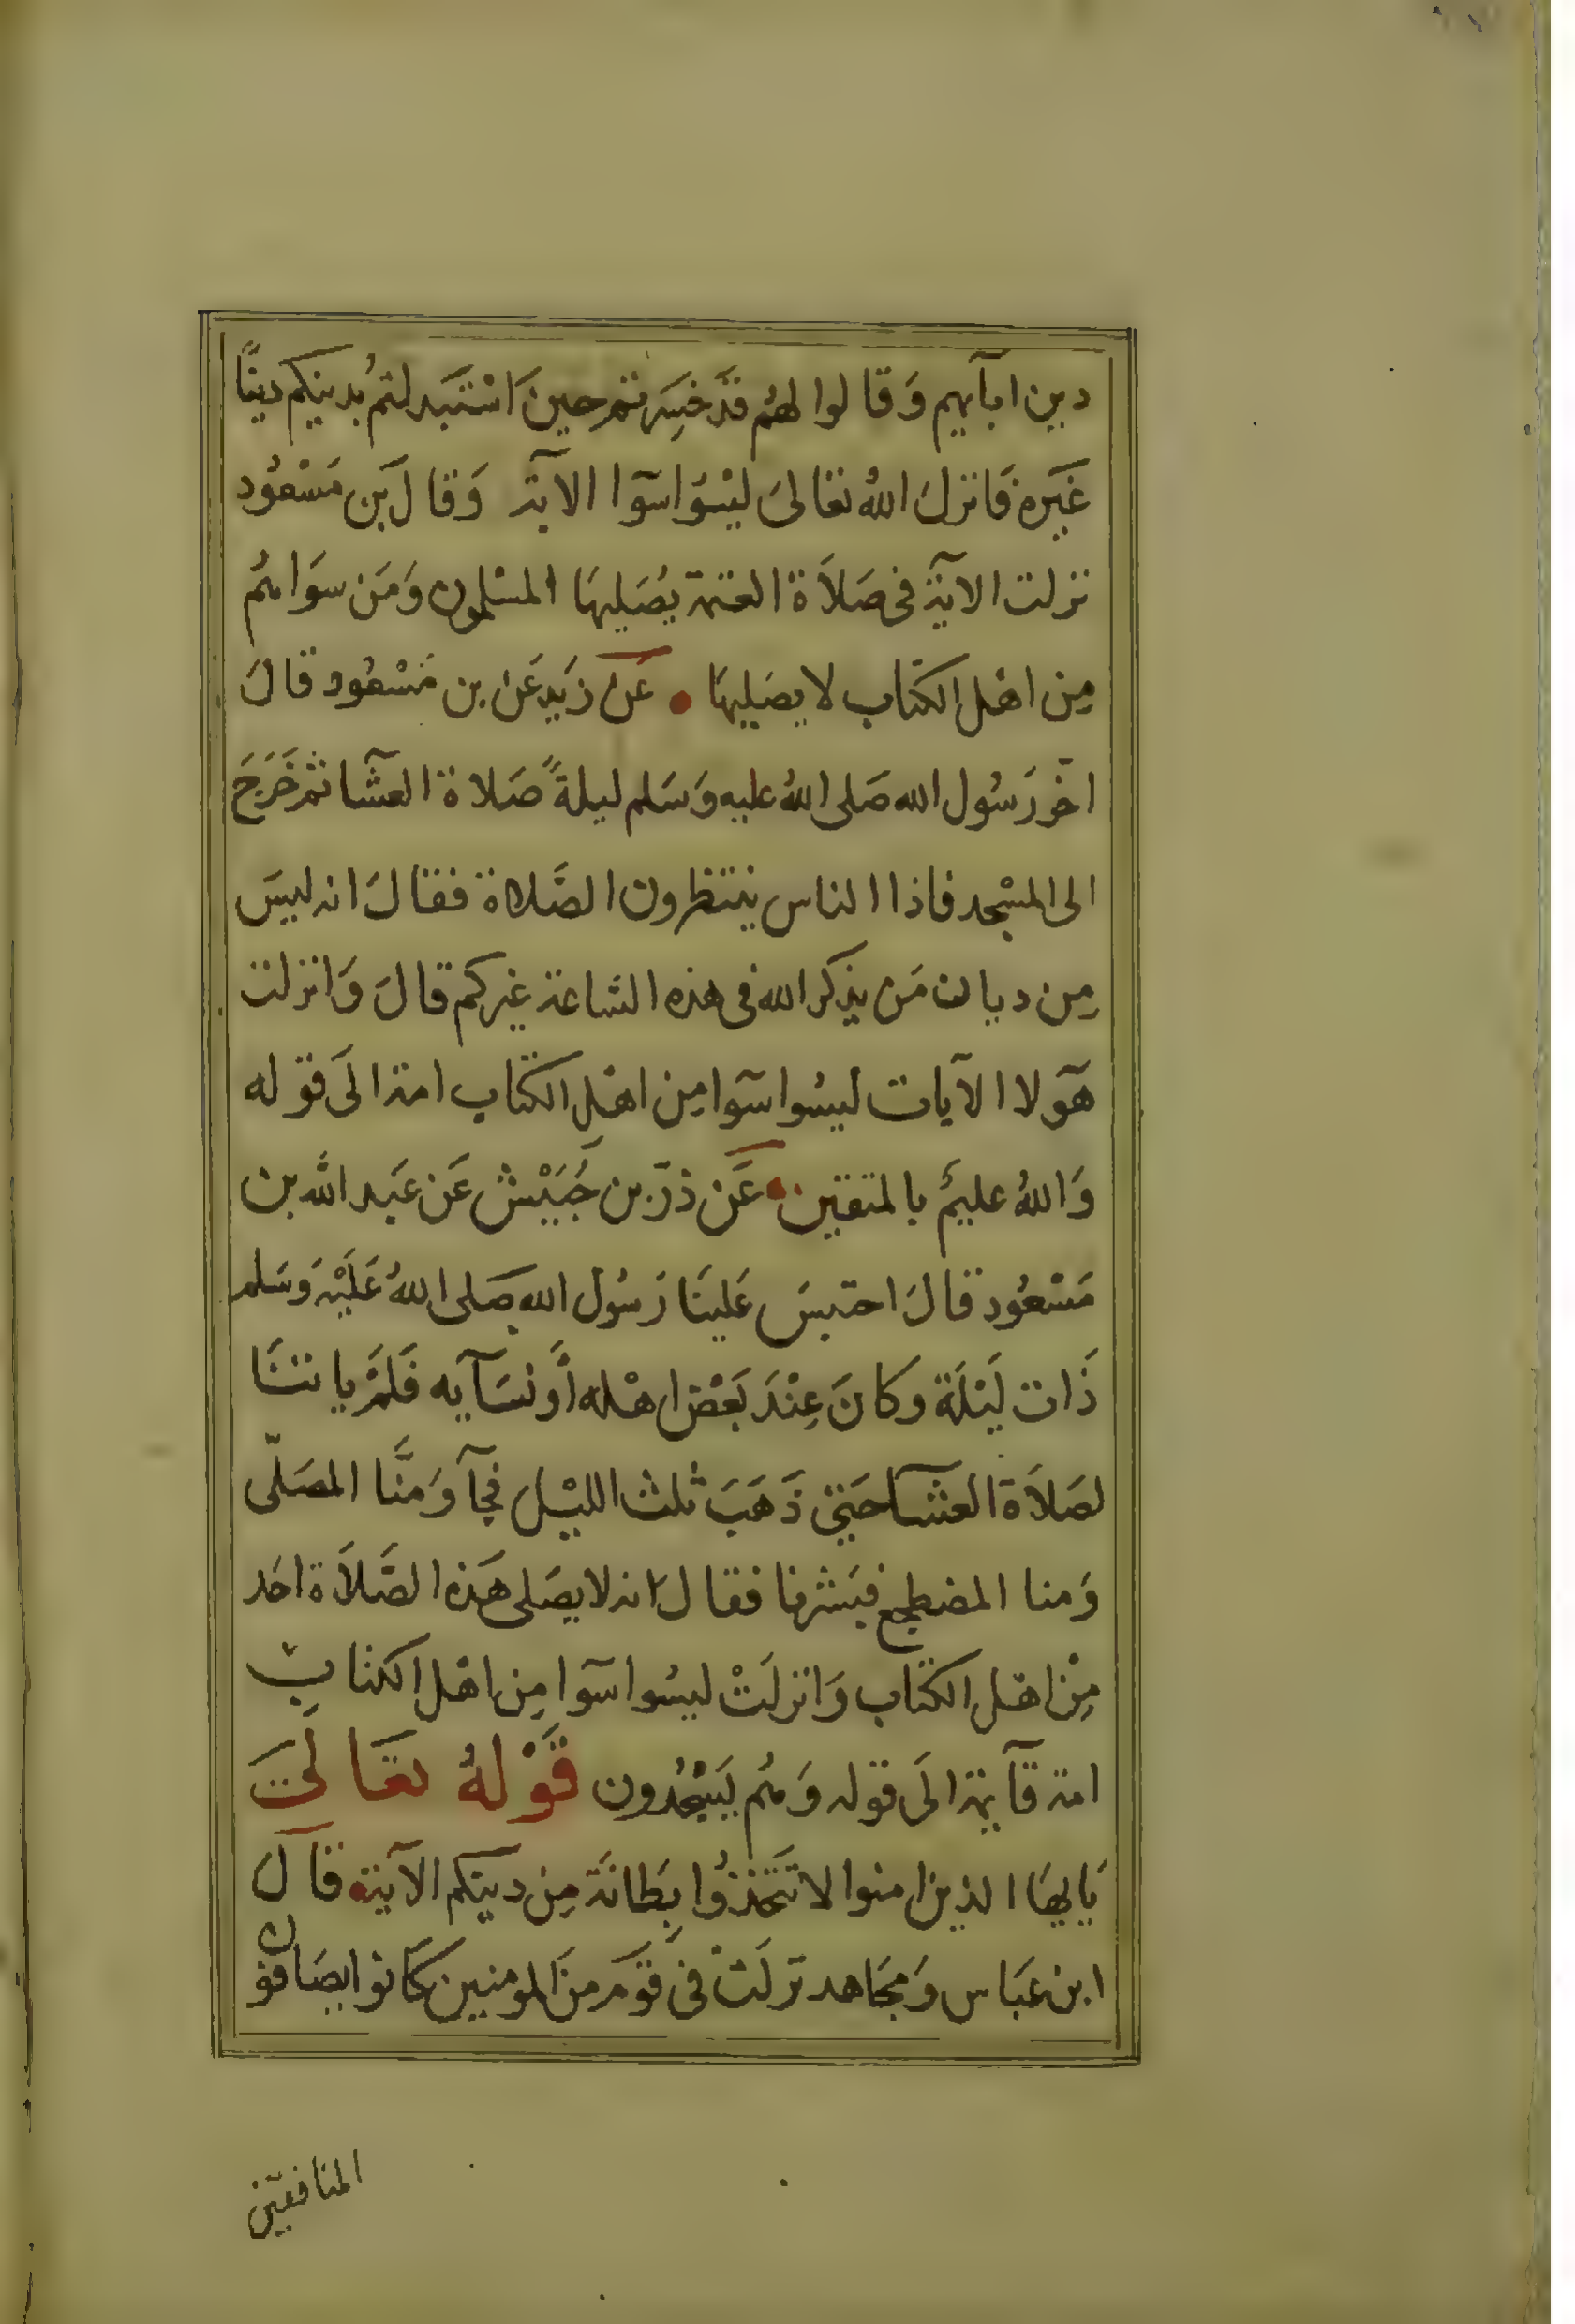 دين ابآيهم وَقالوا لهُم قدَ خَسِرتم حينَ اسْتَبدلتم بُدينكم دينًا
غَيَره فَانزلَ اللهُ تعَالىَ ليْسُوا سَوآ الآية وَقالَ بن مَسْعُود
نزلت الآيَة فى صَلاَة العَتمة يُصَليهَا المسْلمون وَمَن سوَاهُم
مِن اهْل الكتاب لا يصَليهَا • عَن زَيد عَن بن مَسْعُود قالَ
اخّر رَسُول الله صَلى اللهُ عليه وَسَلم ليلةً صَلاة العشآ ثم خَرَجَ
الى المسْجد فاذا الناس ينتظرون الصَّلاة فقالَ انه ليسَ
مِن ديان مَن يذكر الله فى هذه السَّاعة غيركم قالَ وَانزلت
هَولآ الآيات ليسُوا سَوآ مِن اهْلِ الكتاب امة الَى قوله
وَاللهُ عليمٌ بالمتقين • عَن ذرّ بن حُبَيْش عَن عَبد الله بن
مَسْعُود قالَ احتبسَ عَلينَا رَسُول الله صَلى اللهُ عَلَيْهِ وَسَلم
ذَات لَيْلَة وكانَ عِنْدَ بَعْض اهْله أَو نسَآيه فَلَمْ ياتنَا
لصَلاَة العشَآ حَتى ذَهَبَ ثلث الليْل فجآ وَمنَّا المصَلّى
وَمنا المضطجع فبَشرنا فقال انه لا يصَلى هَذه الصَّلاَة احَد
مِنْ اهْل الكتاب وَانزلَتْ ليسُوا سَوآ مِن اهْل الكتابِ
امة قآيمة الَى قوله وَهُم يَسْجُدُون قَوْلهُ تعَالىَ
يَايهَا الذين امنوا لا تَتَّخذوُا بِطَانَة مِن دينكم الآية • قالَ
ابن عبَاس وَمجَاهد نزلَتْ فى قَوم مِنَ المومنين كَانوا يصَافون
المنافقين